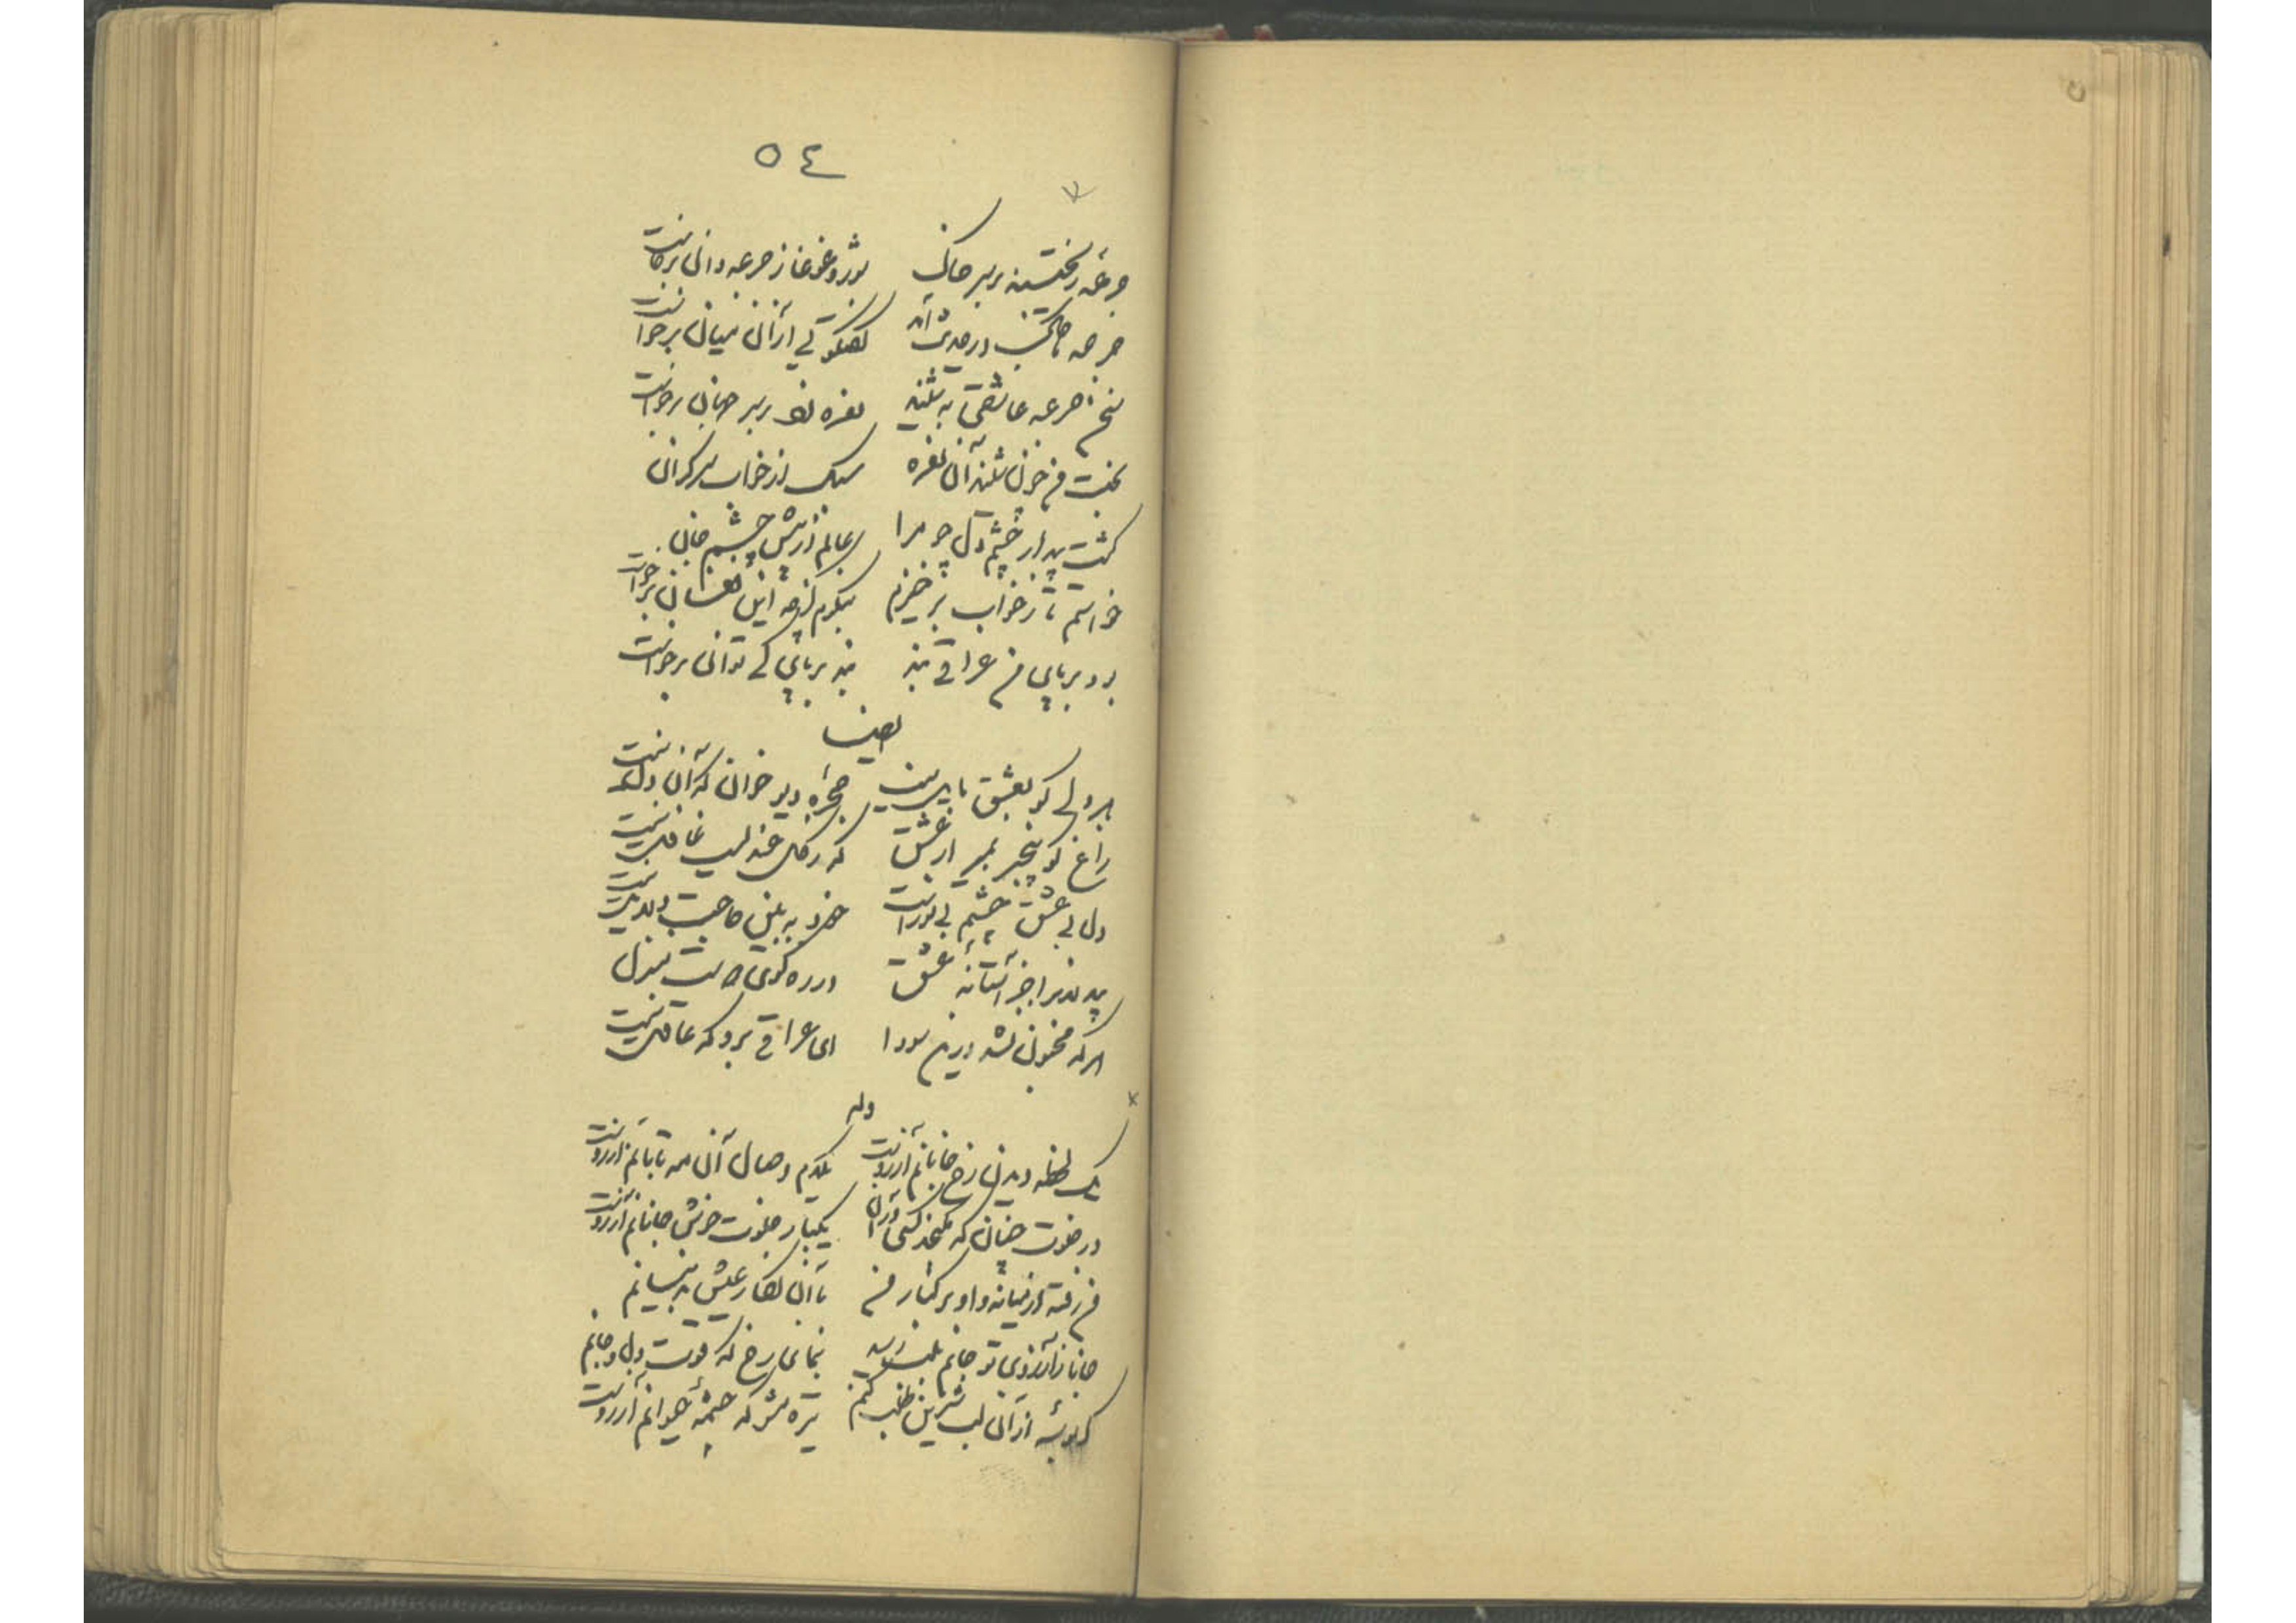 ٥٤
جرعه ریختند بر سر خاک شور و غوغا ز جرعه دان برخاست
جرعه با خاک در حدیث آمد گفتگویی از آن میان برخاست
سخن جرعه عاشقی بشنید نعره زد بر سر جهان برخاست
بخت من چون شنید آن نعره سبک از خواب سرگران
گشت بیدار چشم دل چو مرا عالم از پیش چشم جان
خواستم تا ز خواب برخیزم بنگرم کز چه این فغان برخاست
بود بر پای من عراقی بند بند بر پای کی توان برخاست
ایضا
هر دلی کو بعشق مایل نیست حجره دیو خوان که آن دل نیست
زاغ گو بیخبر بمیر از عشق که ز گل عندلیب غافل نیست
دل بی عشق چشم بی نور است خود ببین حاجت دلایل نیست
بیدلان را جز آستانه عشق در ره کوی دوست منزل
هر که مجنون نشد درین سودا ای عراقی برو که عاقل نیست
وله
یک لحظه دیدن رخ جانانم آرزوست یکدم وصال آن مه تابانم آرزوست
در خلوت چنان که نگنجد کسی در آن یکبار خلوت خوش جانانم آرزوست
من رفته از میانه و او بر کنار من با آن نگار عیش بدینسانم
جانا ز آرزوی تو جانم بلب رسید بنمای رخ که قوت دل و جانم
گر بوسه از آن لب شیرین طلب کنم تیره مشو که چشمه حیوانم آرزوست